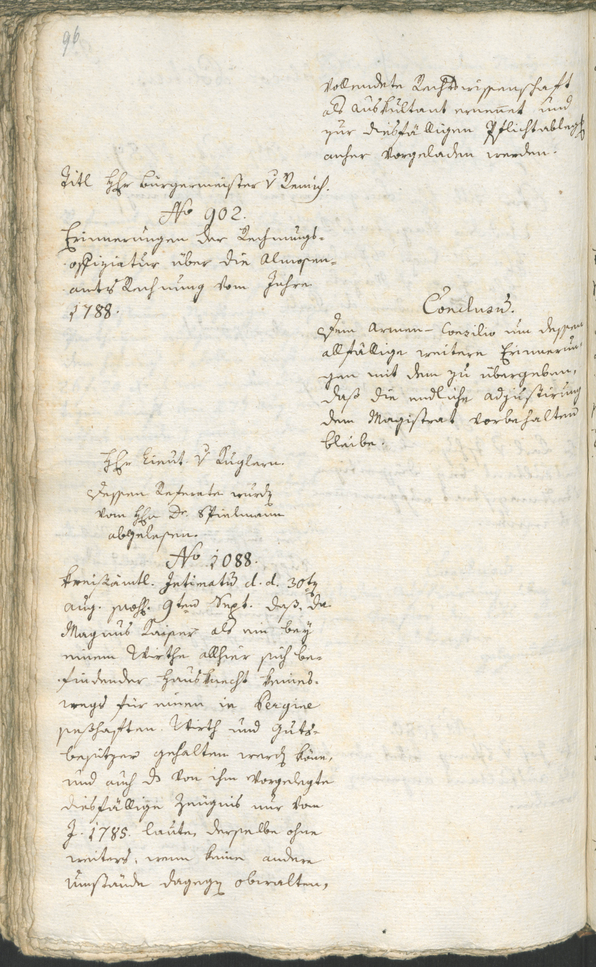 96
vollendete Rechtswissenschaft
als Auskultant ernennet, und
zur diesfälligen Pflichtableg
anher vorgeladen werden.
Titl Hhr Bürgermeister v
No 902.
Erinnerungen der Rechnungs-
offiziatur über die Almosen-
amts Rechnung vom Jahre
1788.
Conclusū.
Dem Armen-Conzilio um dessen
allfällige weitere Erinnerun-
gen mit dem zu übergeben,
daß die endliche Adjustirung
dem Magistrat vorbehalten
bleibe.
Hhr Lieut. v Kuglern.
Dessen Referate wurdē
vom Hhn Dr. Spielmann
abgelesen.
No 1088.
Kreisämtl. Intimatū d. d. 30tē
Aug. 9ten Sept. daß, da
Magnus Kaiser als ein bey
einem Wirthe allhier sich be-
findender Hausknecht keines-
wegs für einen in Bergine
seßhafften Wirth und Guts-
besitzer gehalten werdē köne,
und auch ds von ihm vorgelegte
diesfällige Zeugnis nur vom
J. 1785 laute, derselbe ohne
weiters, wenn keine andere
Umstände dagegē obwalten,